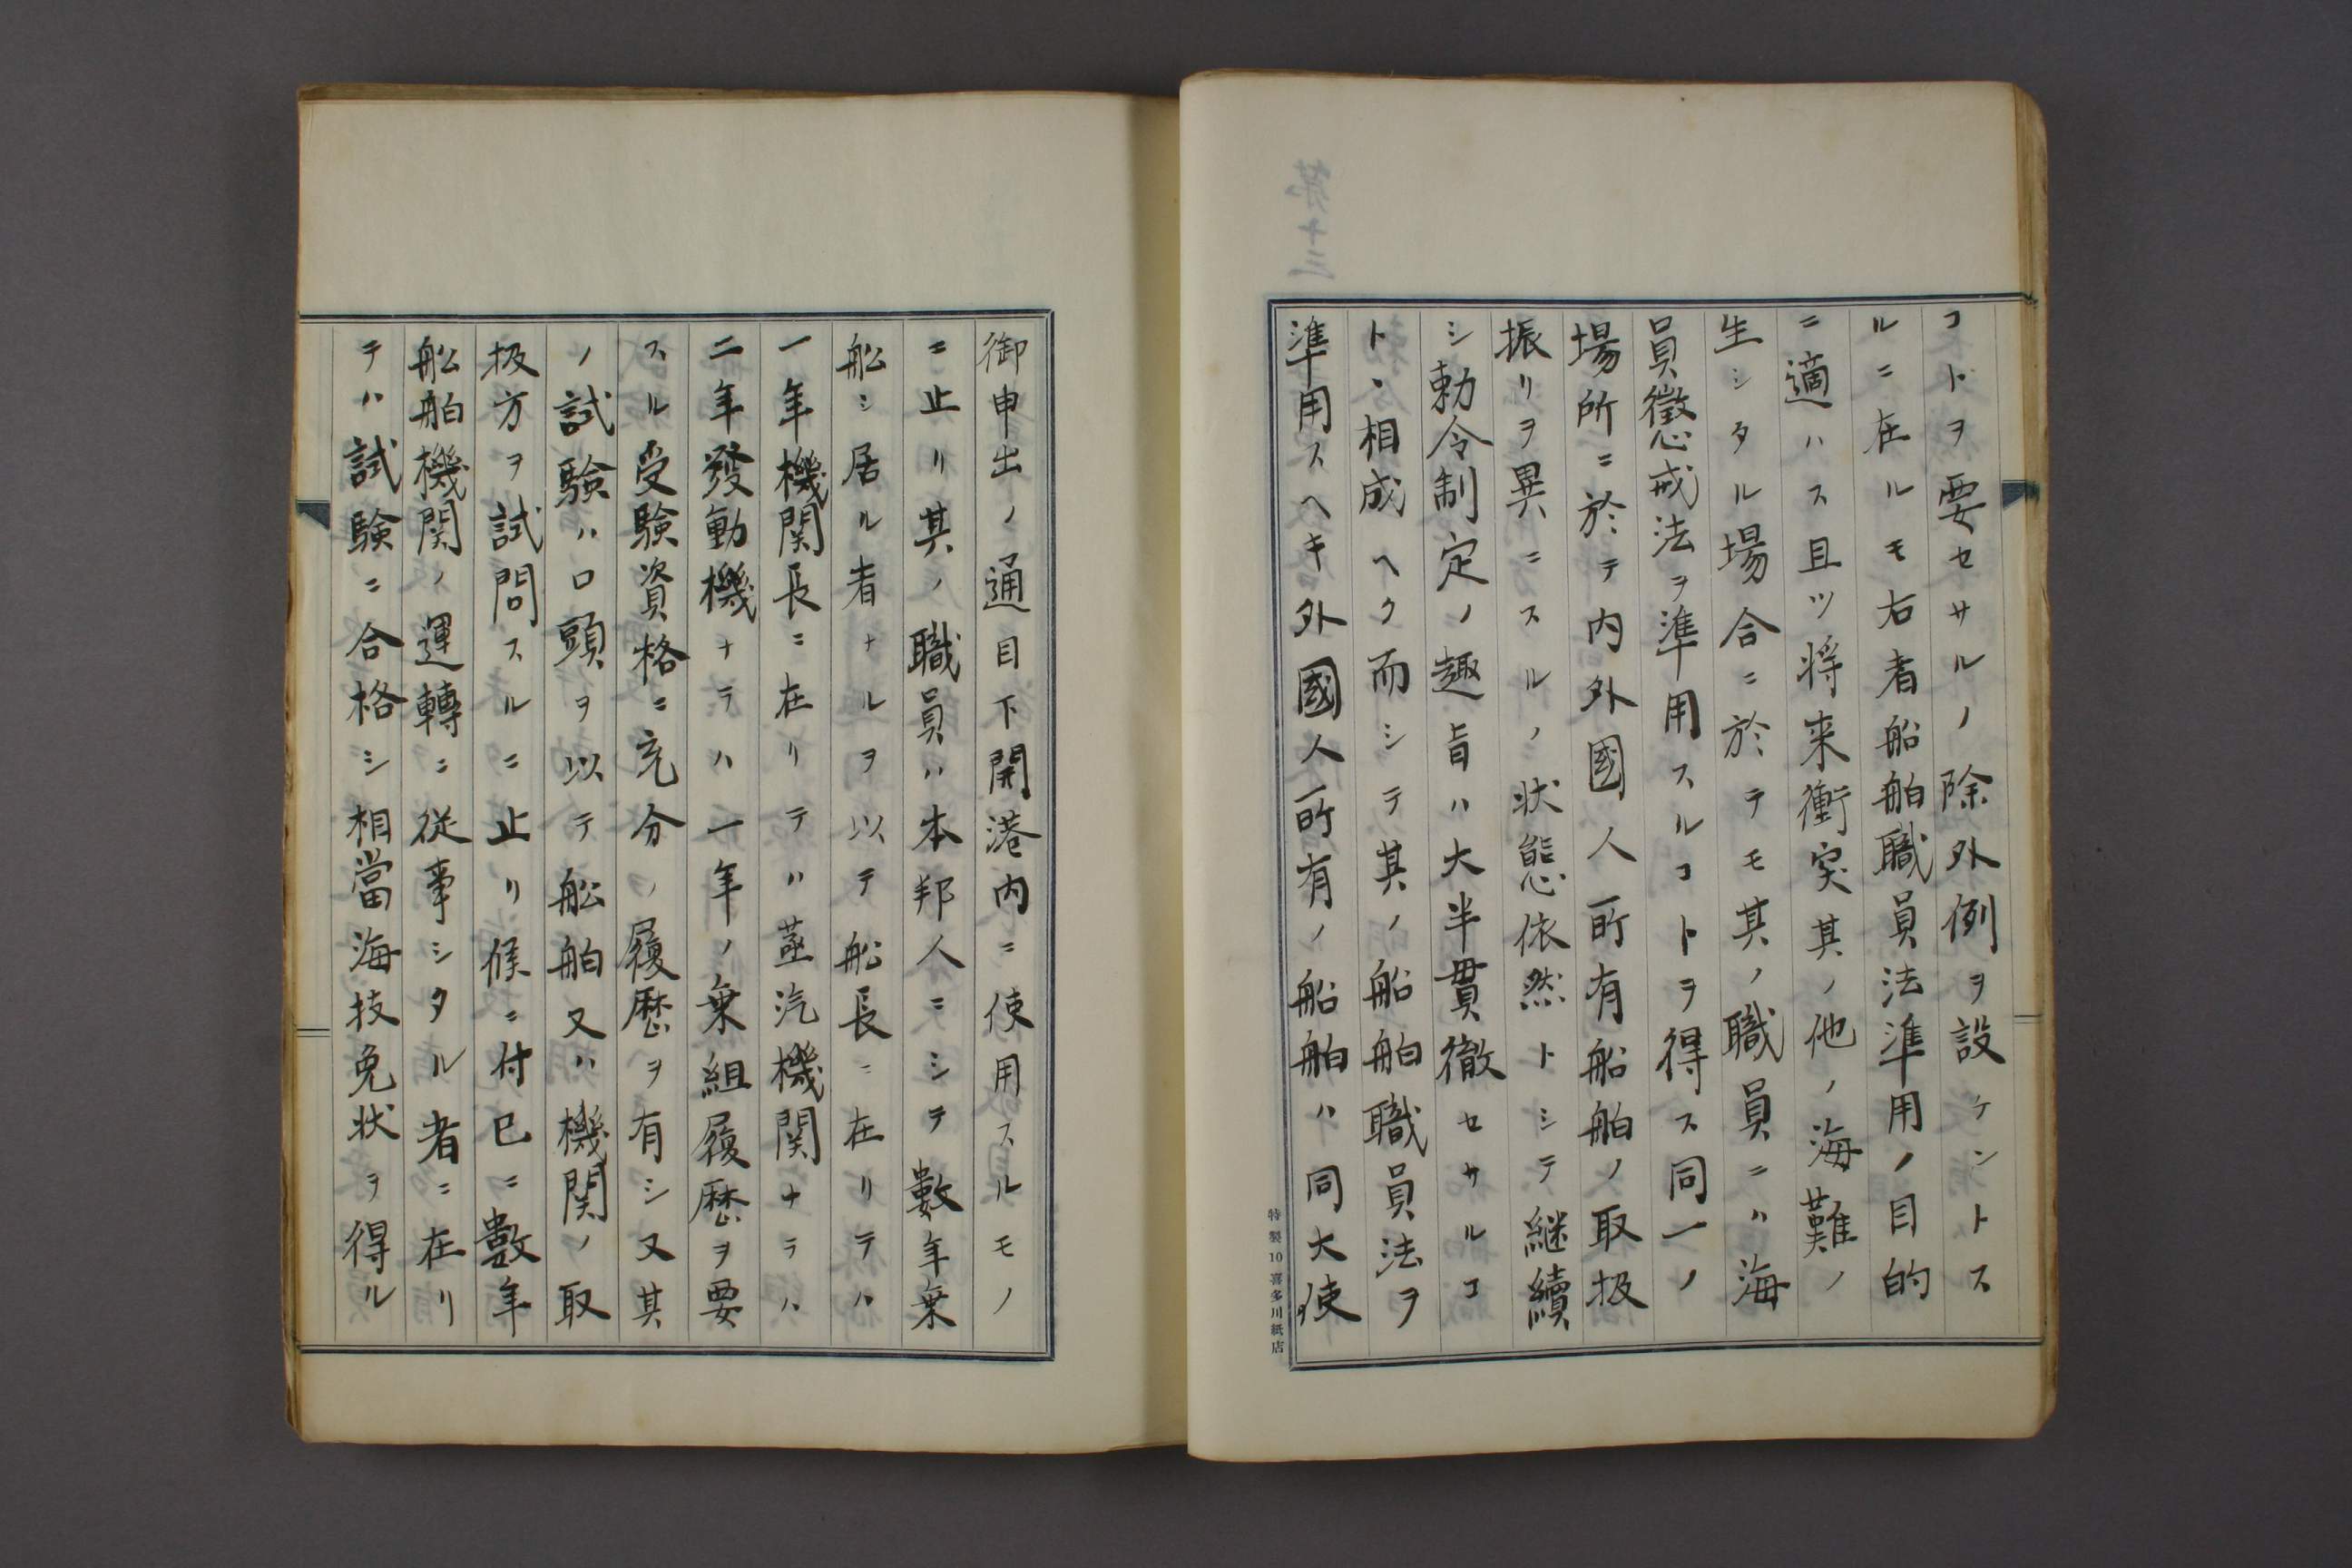 コトヲ要セサルノ除外例ヲ設ケントス
ルニ在ルモ右者船舶職員法準用ノ目的
ニ適ハス且ツ将来衝突其ノ他ノ海難ノ
生シタル場合ニ於テモ其ノ職員ニハ海
員懲戒法ヲ準用スルコトヲ得ス同一ノ
場所ニ於テ内外國人所有船舶ノ取扱
振リヲ異ニスルノ状態依然トシテ継續
シ勅令制定ノ趣旨ハ大半貫徹セサルコ
トヽ相成ヘク而シテ其ノ船舶職員法ヲ
準用スヘキ外國人所有ノ船舶ハ同大使
特製10喜多川紙店
御申出ノ通目下開港内ニ使用スルモノ
ニ止リ其ノ職員ハ本邦人ニシテ數年乗
船シ居ル者ナルヲ以テ船長ニ在リテハ
一年機関長ニ在リテハ蒸汽機関ナラハ
二年發動機ナラハ一年ノ乗組履歴ヲ要
スル受験資格ニ充分ノ履歴ヲ有シ又其
ノ試験ハ口頭ヲ以テ船舶又ハ機関ノ取
扱方ヲ試問スルニ止リ候ニ付已ニ數年
船舶機関ノ運轉ニ従事シタル者ニ在リ
テハ試験ニ合格シ相當海技免状ヲ得ル